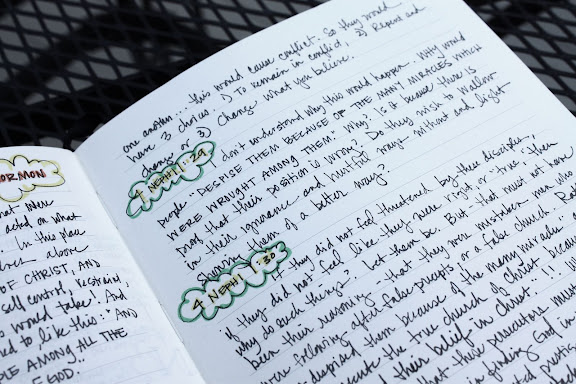 ORMON
what were
acted on what
In this place
above
OF CHRIST, AND
self control, restraint,
would take! And
to like this: "AND
PLE AMONG ALL THE
OF GOD."
one another... this would cause conflict. So they would
have 3 choices: 1) To remain in conflict, 2) Repent and
change or 3) Change what you believe.
4 NEPHI 1:29
I don't understand why this would happen. WHY would
people "DESPISE THEM BECAUSE OF THE MANY MIRACLES WHICH
WERE WROUGHT AMONG THEM." Why? Is it because there is
proof that their position is wrong? Do they wish to wallow
in their ignorance and hurtful ways without and light
showing them of a better way?
4 NEPHI 1:30
If they did not feel threatened by these disciples,
if they did not feel like they were right or "true", then
why do such things? Let them be. But that must not have
been their reasoning - that they were mistaken men who
were following after false precepts or a false church. Rath
despised them because of the many miracles
the true church of Christ because
their belief in Christ. !! !!!
what these persecutors must
is finding God in